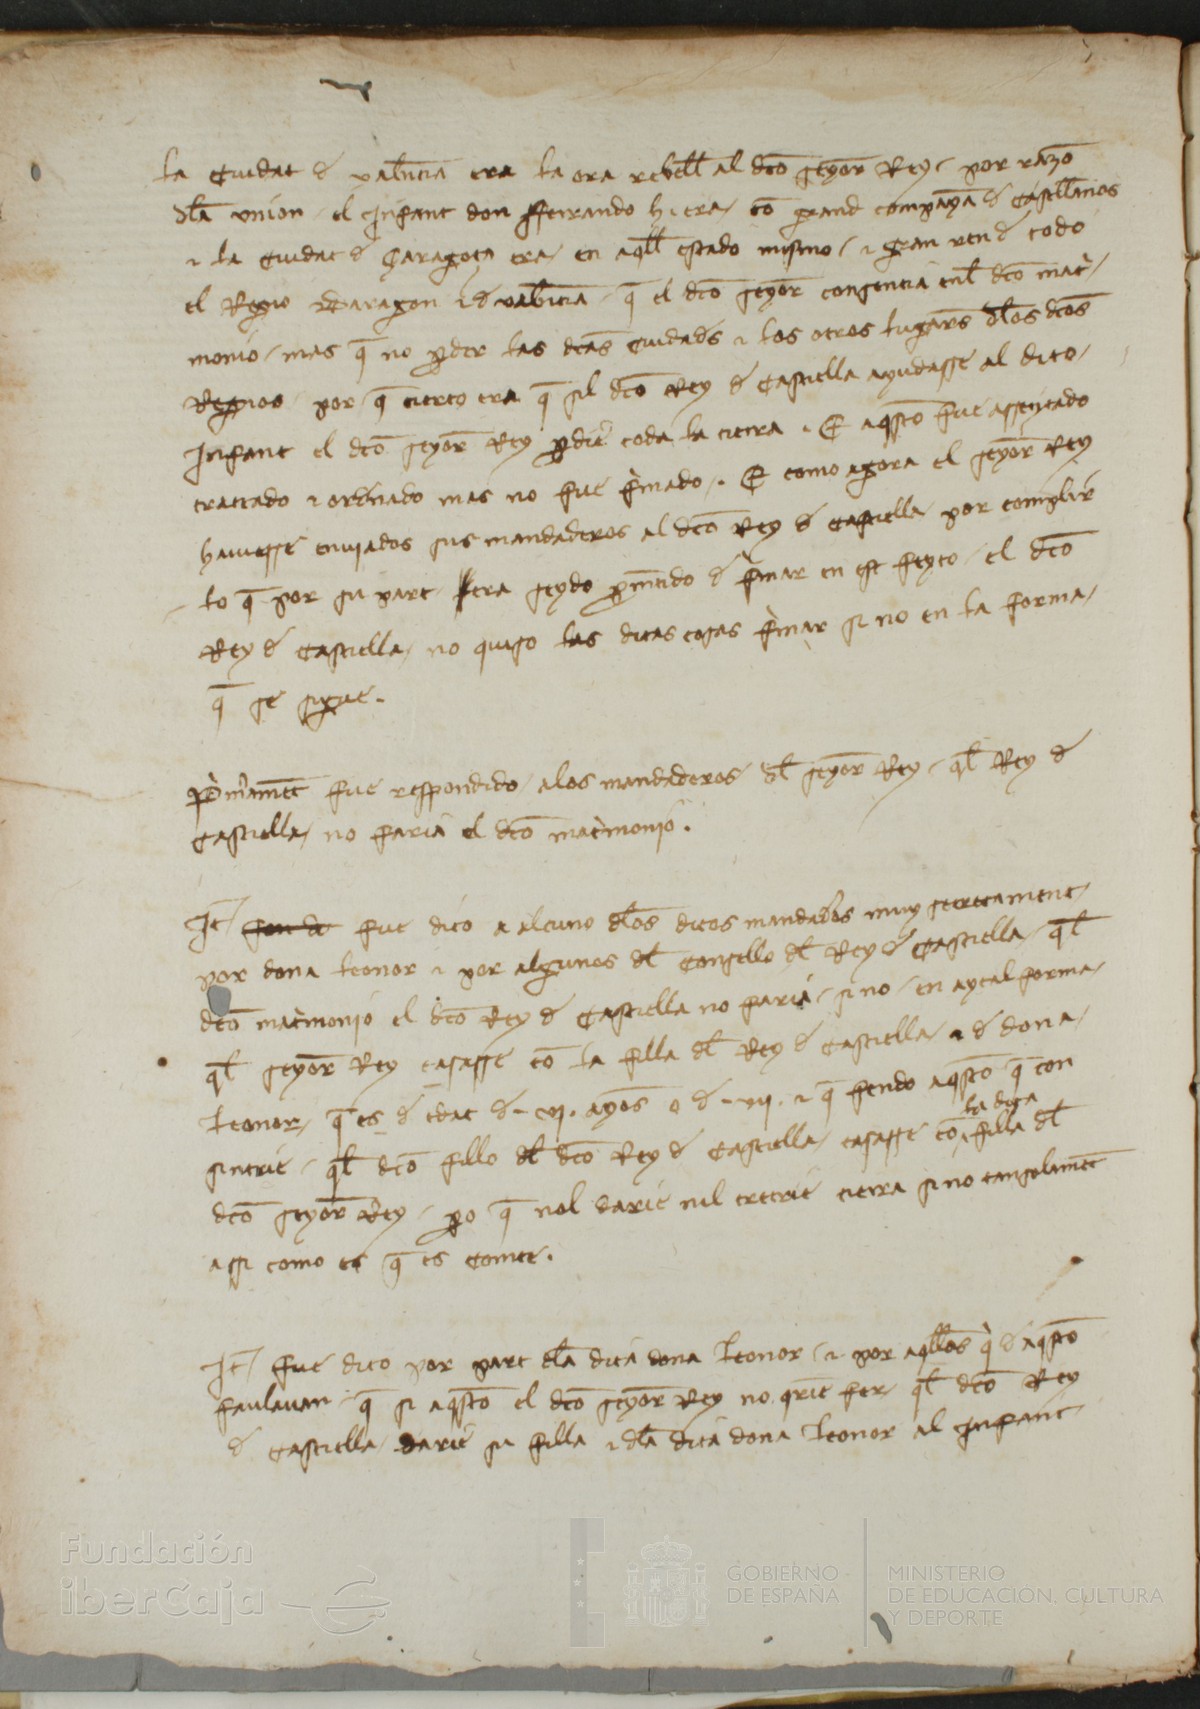 la Ciudat de valencia era la ora rebell al dco senyor Rey por razo
dla union el Inffant don fferrando hi era co grand companya de Castellanos
z la Ciudat de Çaragoça era en aqll estado mismo z gran ren de todo
el Regno Daragon z de valencia q el dco senyor consentia enl dco mat
monio mas q no pder las dcas Ciudads z los otros lugars dlos dcos
Regnos por q cierto era q sil dco Rey de Castiella ayudasse al dito
Infant el dco senyor Rey pdie toda la tierra. E aqsto fue assentado
tractado z ordenado mas no fue fmado. E como agora el senyor Rey
hauiesse enviados sus mandaderos al dco Rey de Castiella por complir
lo q por su part era seydo pmetido de fmar en est feyto el dco
Rey de Castiella no quiso las ditas cosas fmar si no en la forma
q se sigue.
Pmerament fue respondido alos mandaderos dl senyor Rey ql Rey de
Castiella no faria el dco matmonio.
It fue dito a alcuno dlos ditos mandados muy secretament
por dona leonor z por algunos dl Consello dl Rey de Castiella ql
dco matmonio el dco Rey de Castiella no faria si no en aytal forma
ql senyor Rey casasse co la filla dl Rey de Castiella z de dona
leonor q es de edat de .vi. anyos o de .vii. z q fendo aqsto q con
sintrie ql dco fillo dl dco Rey de Castiella casasse co la dita filla dl
dco senyor Rey po q nol darie nil tretrie tierra sino tansolament
assi como es q es Comte.
It fue dito por part dla dita dona leonor z por aqllos q de aqsto
faulauan q si aqsto el dco senyor Rey no qrie fer ql dco Rey
de Castiella darie su filla z dla dita dona leonor al Infant
Fundación
iberCaja
GOBIERNO
DE ESPAÑA
MINISTERIO
DE EDUCACIÓN, CULTURA
Y DEPORTE